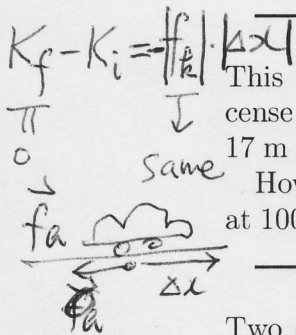 K_f - K_i = -|f_k| · |Δx|
This
cense
17 m
How
at 100
Two
0
same
f_a
Δx